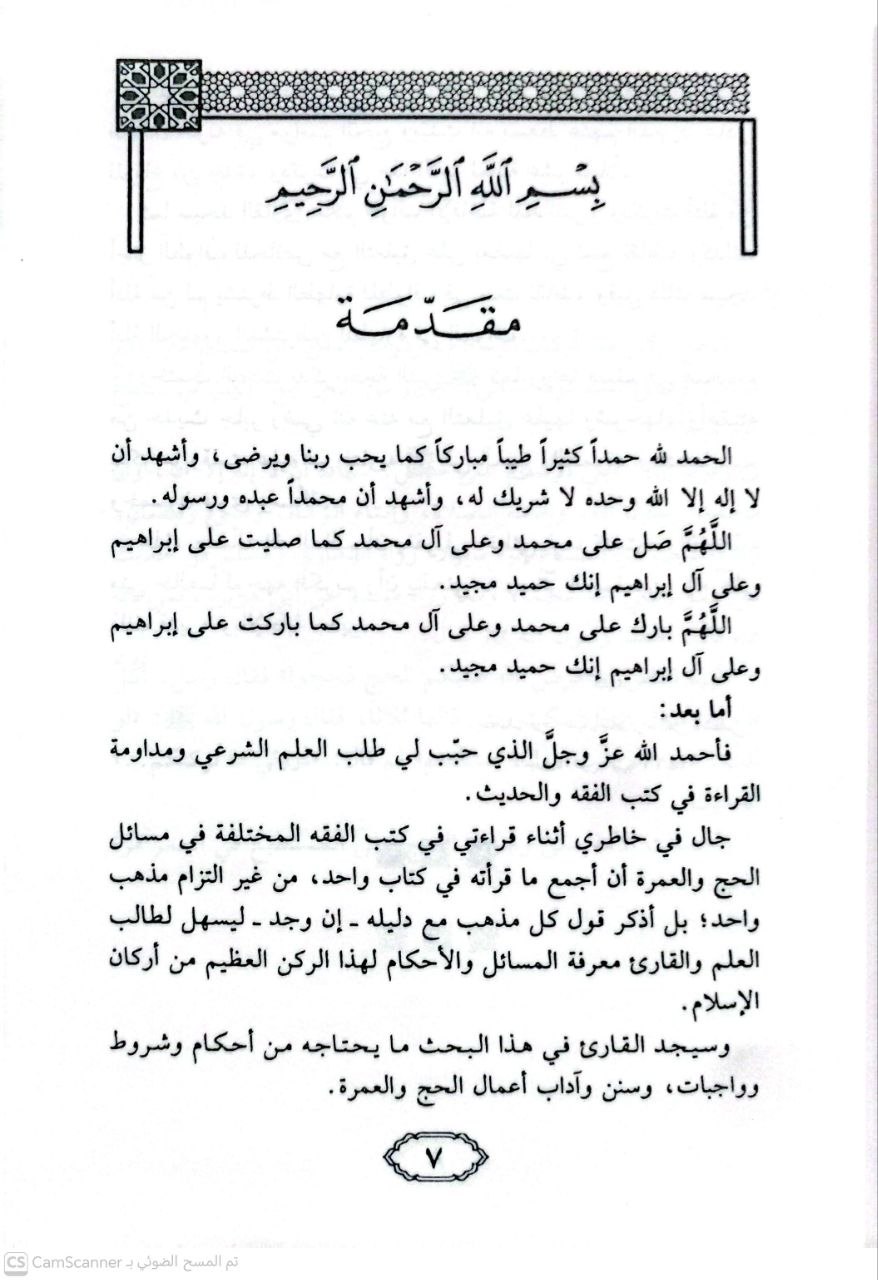 بِسْمِ ٱللَّهِ ٱلرَّحْمَٰنِ ٱلرَّحِيمِ
مقدّمة
الحمد لله حمداً كثيراً طيباً مباركاً كما يحب ربنا ويرضى، وأشهد أن
لا إله إلا الله وحده لا شريك له، وأشهد أن محمداً عبده ورسوله.
اللَّهُمَّ صَل على محمد وعلى آل محمد كما صليت على إبراهيم
وعلى آل إبراهيم إنك حميد مجيد.
اللَّهُمَّ بارك على محمد وعلى آل محمد كما باركت على إبراهيم
وعلى آل إبراهيم إنك حميد مجيد.
أما بعد:
فأحمد الله عزَّ وجلَّ الذي حبّب لي طلب العلم الشرعي ومداومة
القراءة في كتب الفقه والحديث.
جال في خاطري أثناء قراءتي في كتب الفقه المختلفة في مسائل
الحج والعمرة أن أجمع ما قرأته في كتاب واحد، من غير التزام مذهب
واحد؛ بل أذكر قول كل مذهب مع دليله ـ إن وجد ـ ليسهل لطالب
العلم والقارئ معرفة المسائل والأحكام لهذا الركن العظيم من أركان
الإسلام.
وسيجد القارئ في هذا البحث ما يحتاجه من أحكام وشروط
وواجبات، وسنن وآداب أعمال الحج والعمرة.
٧
CS CamScanner تم المسح الضوئي بـ